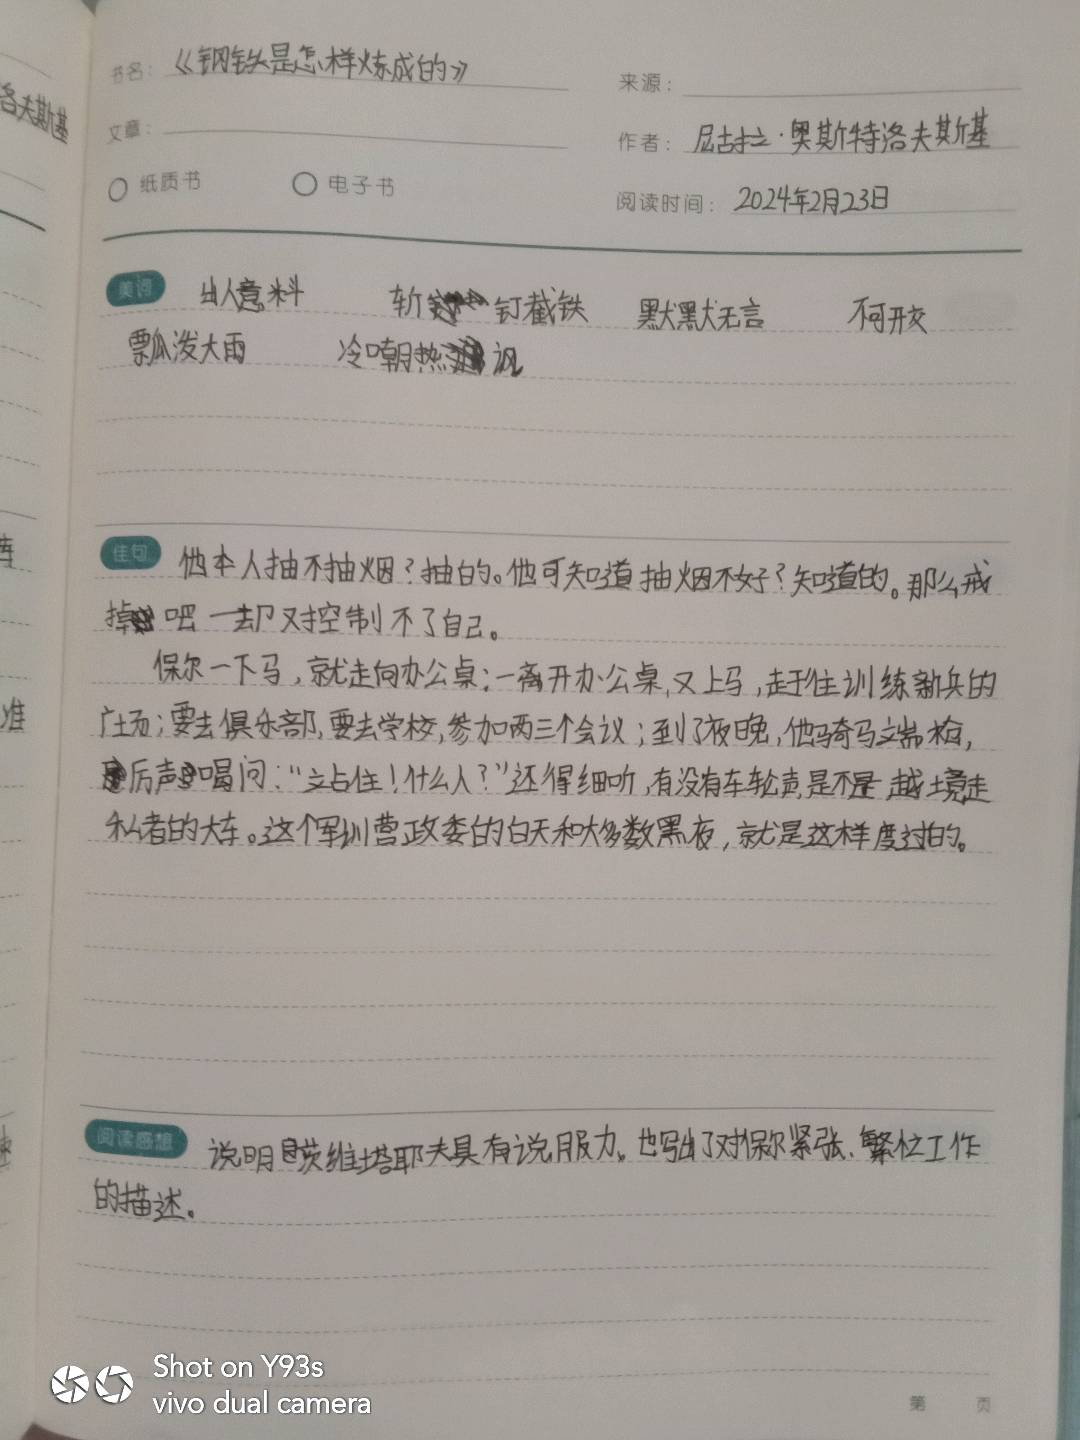 洛夫斯基
书名：《钢铁是怎样炼成的》
来源：
文章：
作者：尼古拉·奥斯特洛夫斯基
纸质书 电子书
阅读时间：2024年2月23日
美词 出人意料 斩钉截铁 默默无言 何开交
瓢泼大雨 冷嘲热讽
佳句 他本人抽不抽烟？抽的。他可知道抽烟不好？知道的。那么戒
掉吧 一却又控制不了自己。
保尔一下马，就走向办公桌；一离开办公桌，又上马，赶往训练新兵的
广场；要去俱乐部，要去学校，参加两三个会议；到了夜晚，他骑马端枪，
厉声喝问：“站住！什么人？”还得细听，有没有车轮声，是不是越境走
私者的大车。这个军训营政委的白天和大多数黑夜，就是这样度过的。
准
阅读感想 说明茨维塔耶夫具有说服力。也写出了对保尔紧张、繁忙工作
的描述。
Shot on Y93s
vivo dual camera
第 页